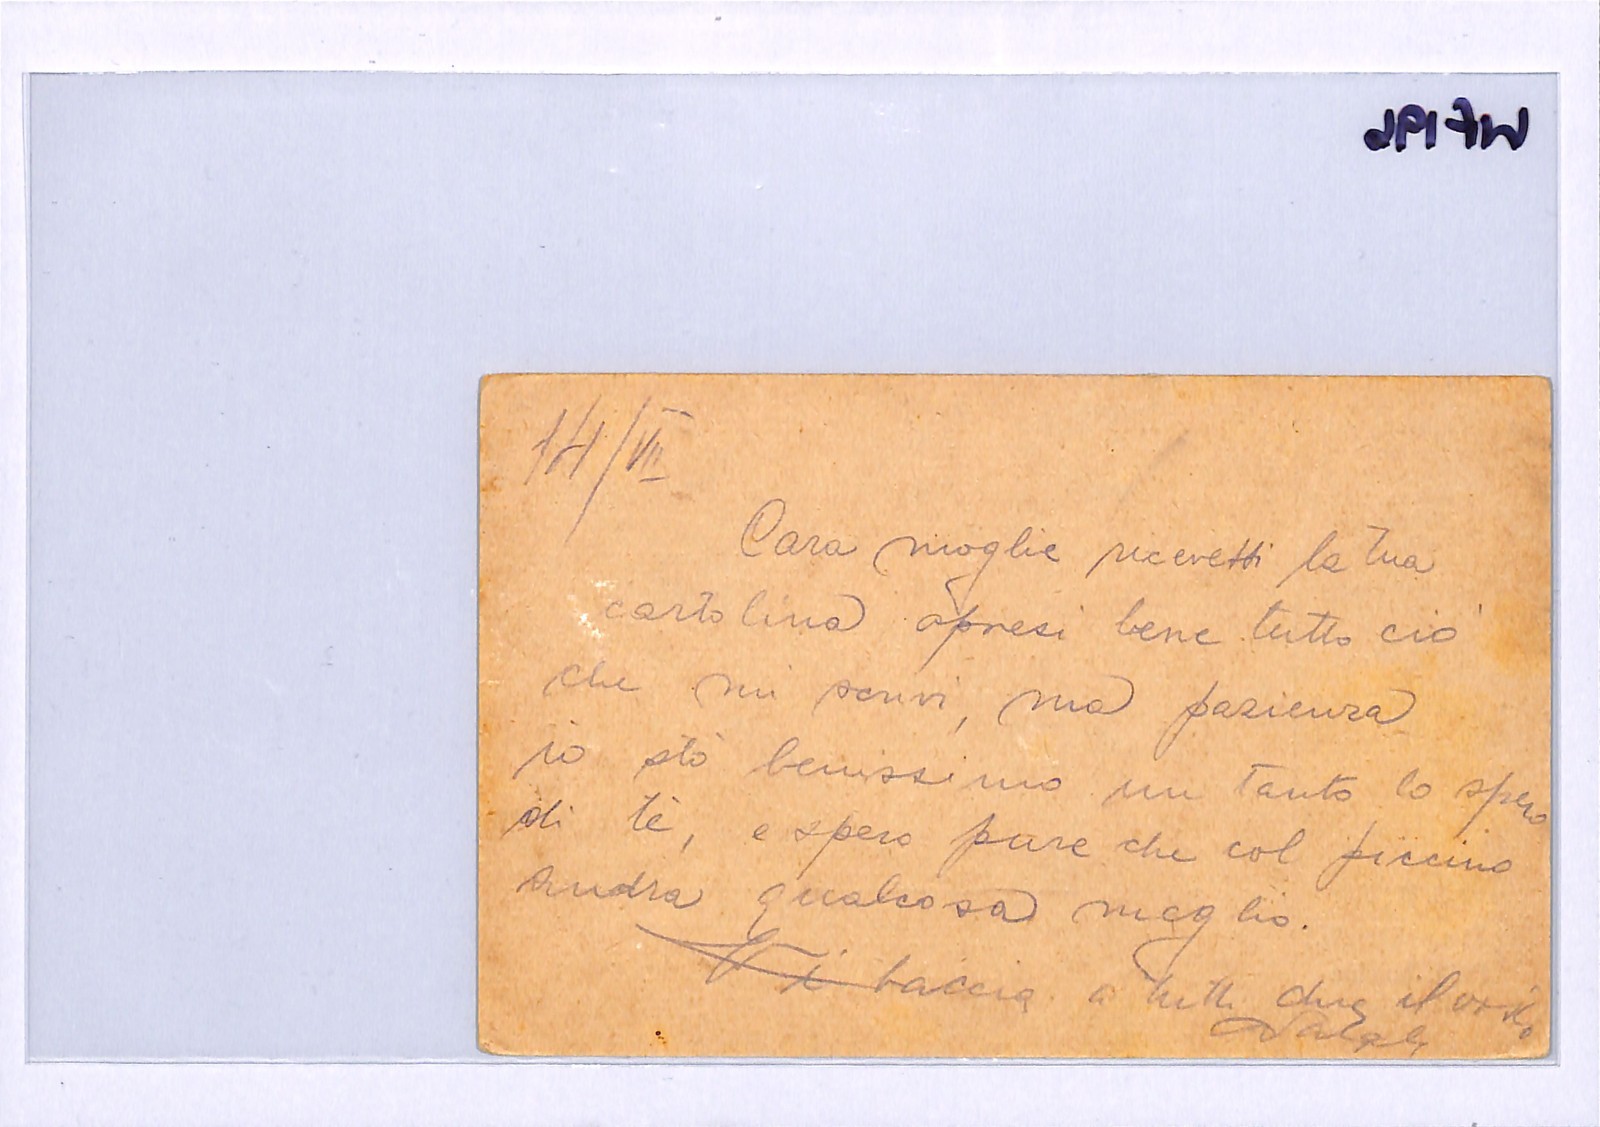 14/VII
Cara moglie ricevetti la tua
cartolina apresi bene tutto ciò
che mi scrivi, ma pazienza
io stò benissimo un tanto lo spero
di tè, e spero pure che col piccino
andra qualcosa meglio.
Vi baccia a tutti due il vostro